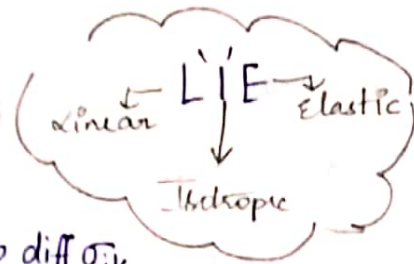 L I E
Linear
Elastic
Isotropic
diff σ